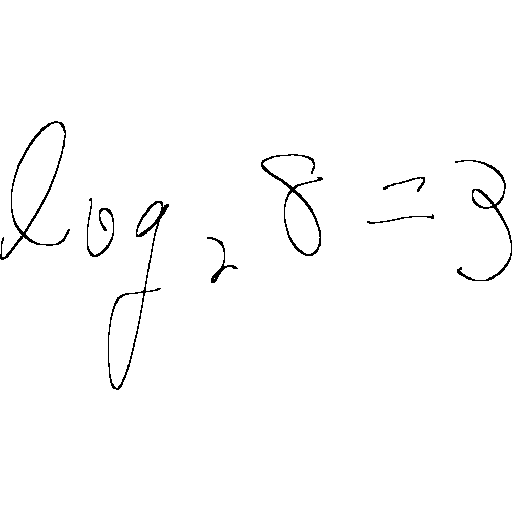 log₂ 8 = 3